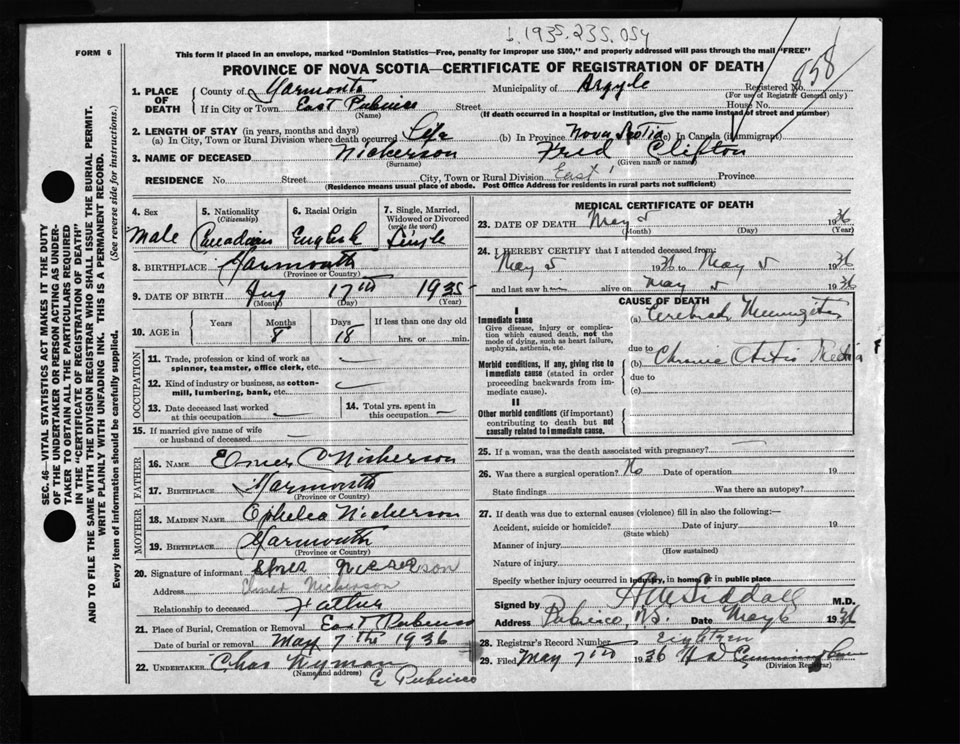 b. 1935.235.054
FORM 6
This form if placed in an envelope, marked "Dominion Statistics—Free, penalty for improper use $300," and properly addressed will pass through the mail "FREE"
PROVINCE OF NOVA SCOTIA—CERTIFICATE OF REGISTRATION OF DEATH
858
1. PLACE OF DEATH
County of Yarmouth Municipality of Argyle Registered No.
(For use of Registrar General only)
If in City or Town East Pubnico Street House No.
(Name) (If death occurred in a hospital or institution, give the name instead of street and number)
2. LENGTH OF STAY (in years, months and days)
(a) In City, Town or Rural Division where death occurred Life (b) In Province Nova Scotia (c) In Canada (if immigrant)
3. NAME OF DECEASED Nickerson Fred Clifton
(Surname) (Given name or names)
RESIDENCE No. Street City, Town or Rural Division East Province
(Residence means usual place of abode. Post Office Address for residents in rural parts not sufficient)
4. Sex Male
5. Nationality (Citizenship) Canadian
6. Racial Origin English
7. Single, Married, Widowed or Divorced (write the word) Single
8. BIRTHPLACE Yarmouth
(Province or Country)
9. DATE OF BIRTH Aug 17th 1935
(Month) (Day) (Year)
10. AGE in Years Months Days If less than one day old
8 18 hrs. or min.
OCCUPATION
11. Trade, profession or kind of work as spinner, teamster, office clerk, etc.
12. Kind of industry or business, as cotton-mill, lumbering, bank, etc.
13. Date deceased last worked at this occupation
14. Total yrs. spent in this occupation
15. If married give name of wife or husband of deceased
FATHER
16. NAME Elmer C Nickerson
17. BIRTHPLACE Yarmouth
(Province or Country)
MOTHER
18. MAIDEN NAME Ophelea Nickerson
19. BIRTHPLACE Yarmouth
(Province or Country)
20. Signature of informant Elmer Nickerson
Address Elmer Nickerson
Relationship to deceased Father
21. Place of Burial, Cremation or Removal East Pubnico
Date of burial or removal May 7th 1936
22. UNDERTAKER Chas Nyman
(Name and address)
E Pubnico
MEDICAL CERTIFICATE OF DEATH
23. DATE OF DEATH May 5 1936
(Month) (Day) (Year)
24. I HEREBY CERTIFY that I attended deceased from
May 5 1936 to May 5 1936
and last saw h alive on May 5 1936
CAUSE OF DEATH
I
Immediate cause
Give disease, injury or complication which caused death, not the mode of dying, such as heart failure, asphyxia, asthenia, etc.
(a) Cerebral Meningitis
due to
Morbid conditions, if any, giving rise to immediate cause (stated in order proceeding backwards from immediate cause).
(b) Chronic Otitis Media
due to
(c)
II
Other morbid conditions (if important) contributing to death but not causally related to immediate cause.
25. If a woman, was the death associated with pregnancy?
26. Was there a surgical operation? No Date of operation 19
State findings Was there an autopsy?
27. If death was due to external causes (violence) fill in also the following:—
Accident, suicide or homicide? Date of injury 19
(State which)
Manner of injury
(How sustained)
Nature of injury
Specify whether injury occurred in industry, in home, or in public place
Signed by Siddall M.D.
Address Pubnico, N.S. Date May 6 1936
28. Registrar's Record Number eighteen
29. Filed May 7th 1936 Cunningham
(Division Registrar)
SEC. 46—VITAL STATISTICS ACT MAKES IT THE DUTY
OF THE UNDERTAKER OR PERSON ACTING AS UNDER-
TAKER TO OBTAIN ALL THE PARTICULARS REQUIRED
IN THE "CERTIFICATE OF REGISTRATION OF DEATH"
AND TO FILE THE SAME WITH THE DIVISION REGISTRAR WHO SHALL ISSUE THE BURIAL PERMIT.
WRITE PLAINLY WITH UNFADING INK. THIS IS A PERMANENT RECORD.
Every item of information should be carefully supplied. (See reverse side for instructions.)